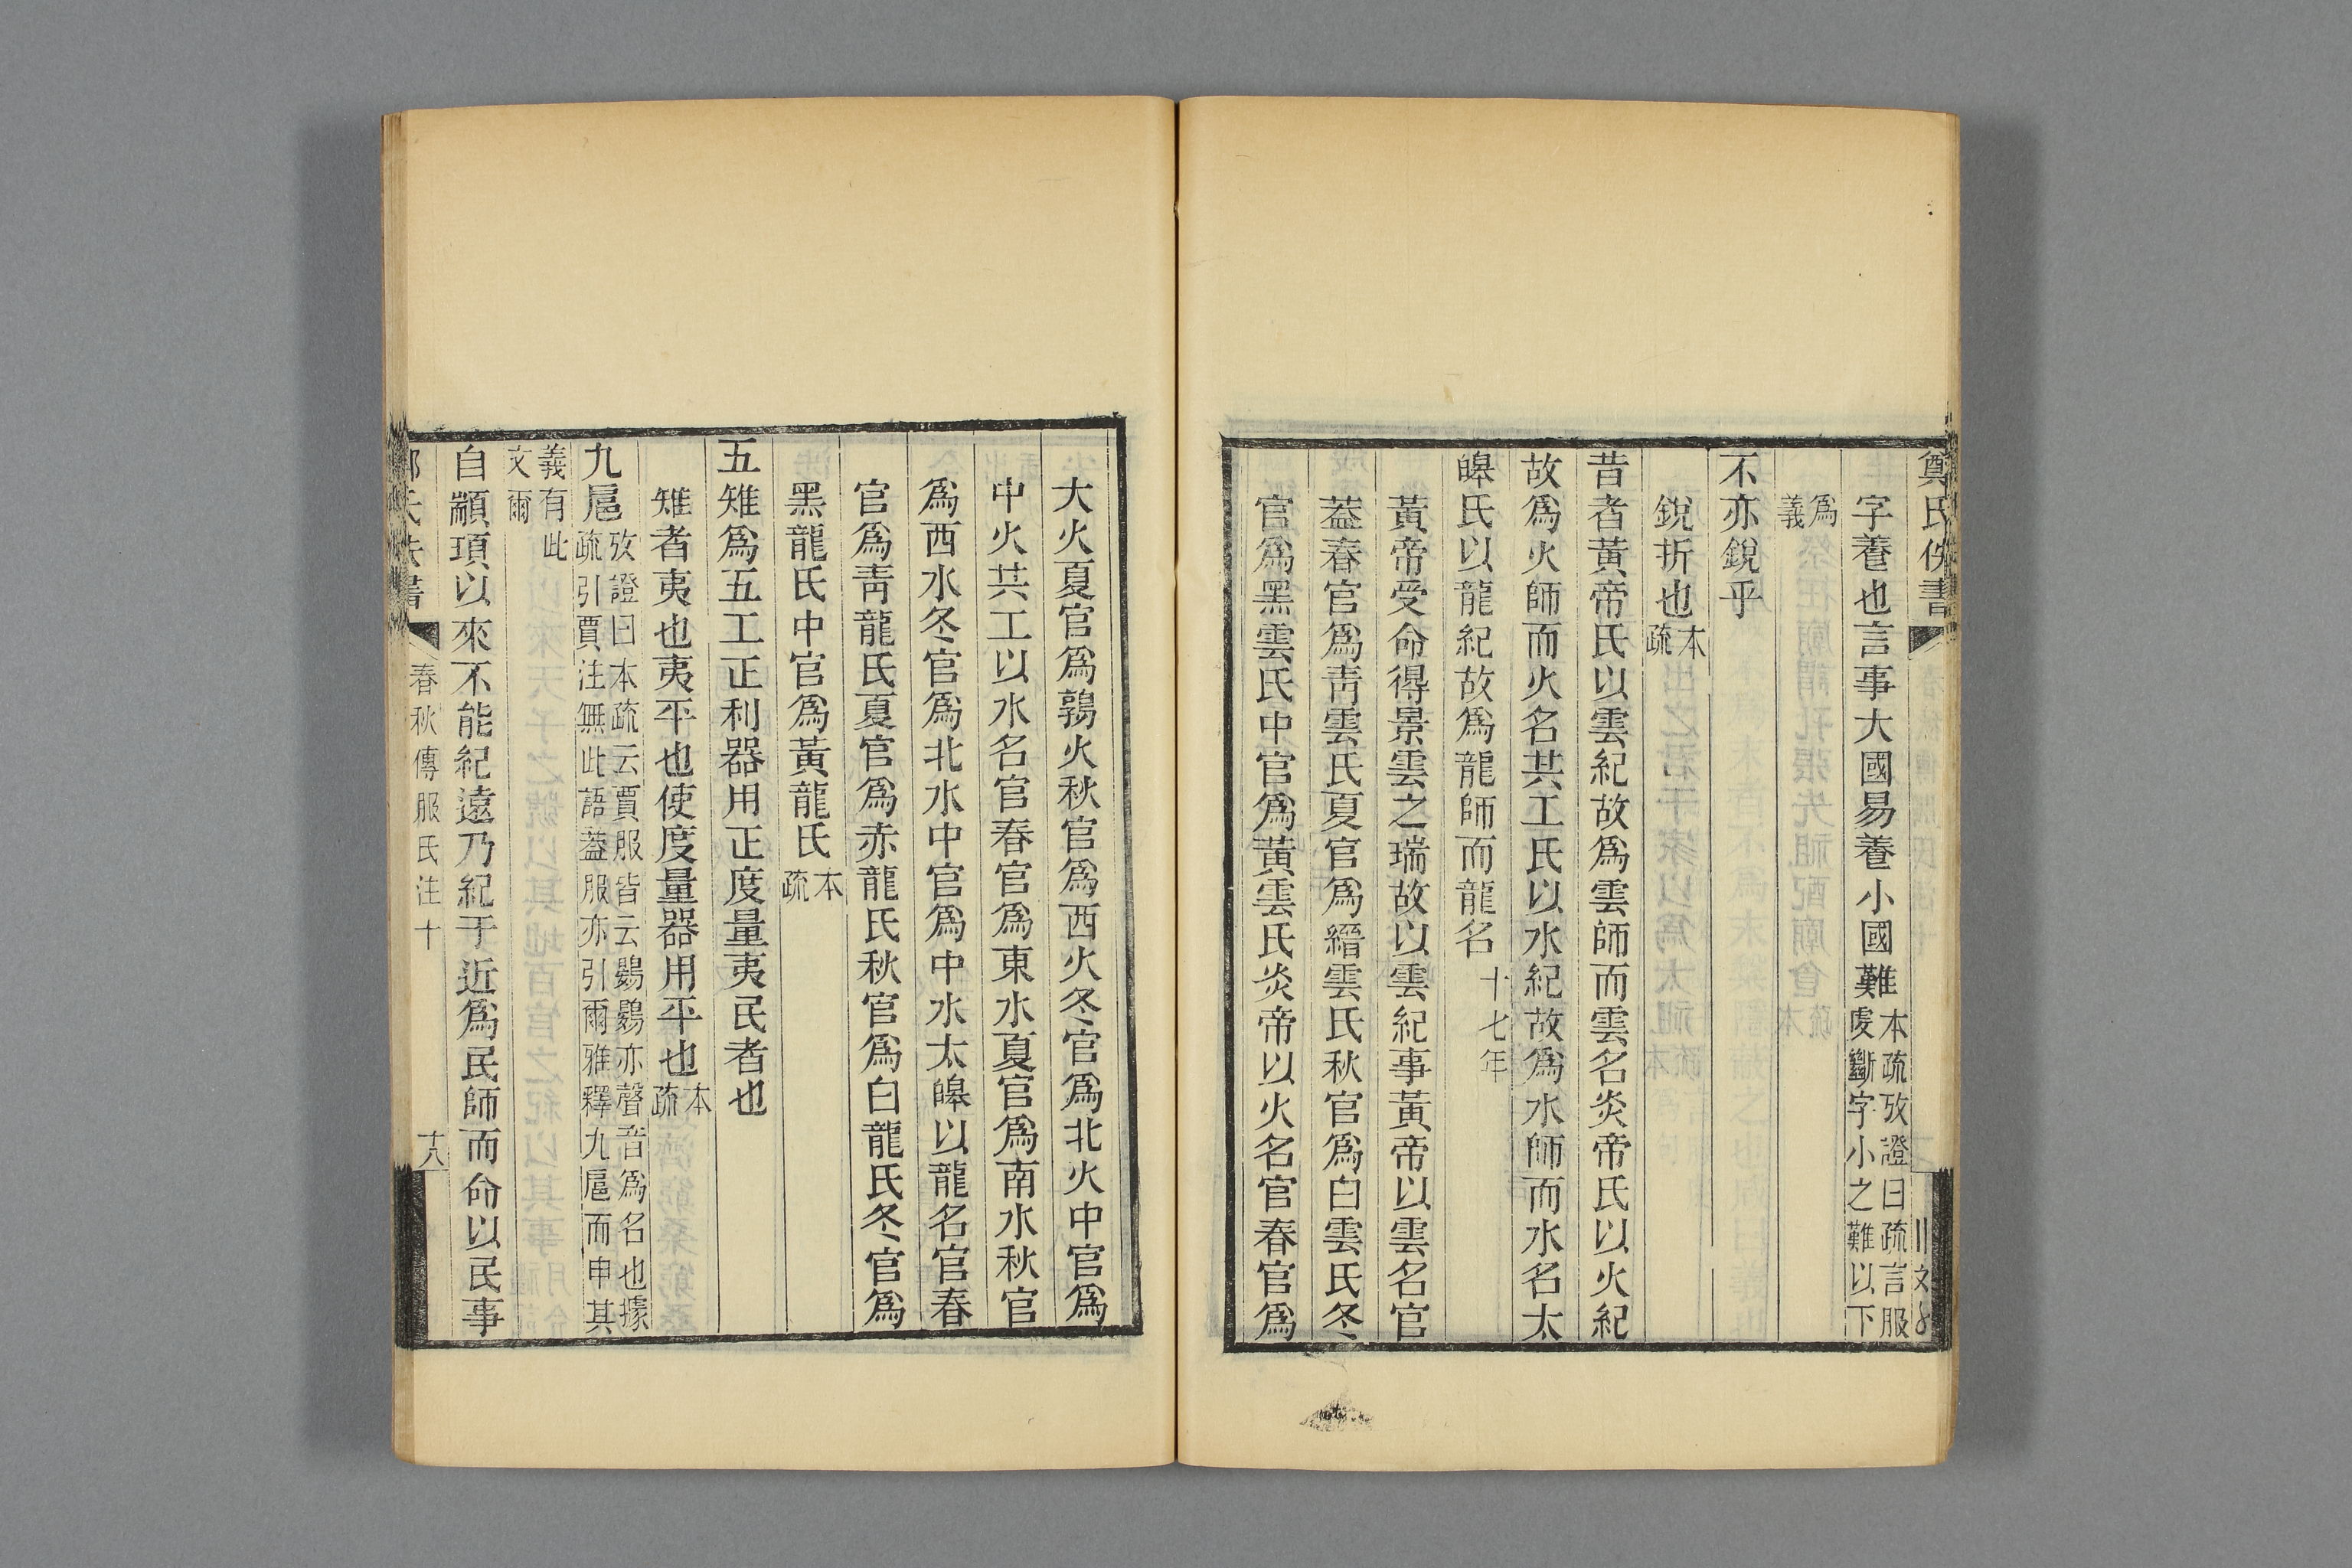 鄭氏佚書
字養也言事大國易養小國難本疏攷證曰疏言服
虔斷字小之難以下
爲
義
不亦銳乎
銳折也本
疏
昔者黃帝氏以雲紀故爲雲師而雲名炎帝氏以火紀
故爲火師而火名共工氏以水紀故爲水師而水名太
皞氏以龍紀故爲龍師而龍名十七年
黃帝受命得景雲之瑞故以雲紀事黃帝以雲名官
葢春官爲靑雲氏夏官爲縉雲氏秋官爲白雲氏冬
官爲黑雲氏中官爲黃雲氏炎帝以火名官春官爲
大火夏官爲鶉火秋官爲西火冬官爲北火中官爲
中火共工以水名官春官爲東水夏官爲南水秋官
爲西水冬官爲北水中官爲中水太皞以龍名官春
官爲靑龍氏夏官爲赤龍氏秋官爲白龍氏冬官爲
黑龍氏中官爲黃龍氏本
疏
五雉爲五工正利器用正度量夷民者也
雉者夷也夷平也使度量器用平也本
疏
九扈攷證曰本疏云賈服皆云鷃鷃亦聲音爲名也據
疏引賈注無此語葢服亦引爾雅釋九扈而申其
義有此
文爾
自顓頊以來不能紀遠乃紀于近爲民師而命以民事
氏佚書
春秋傳服氏注十
十八